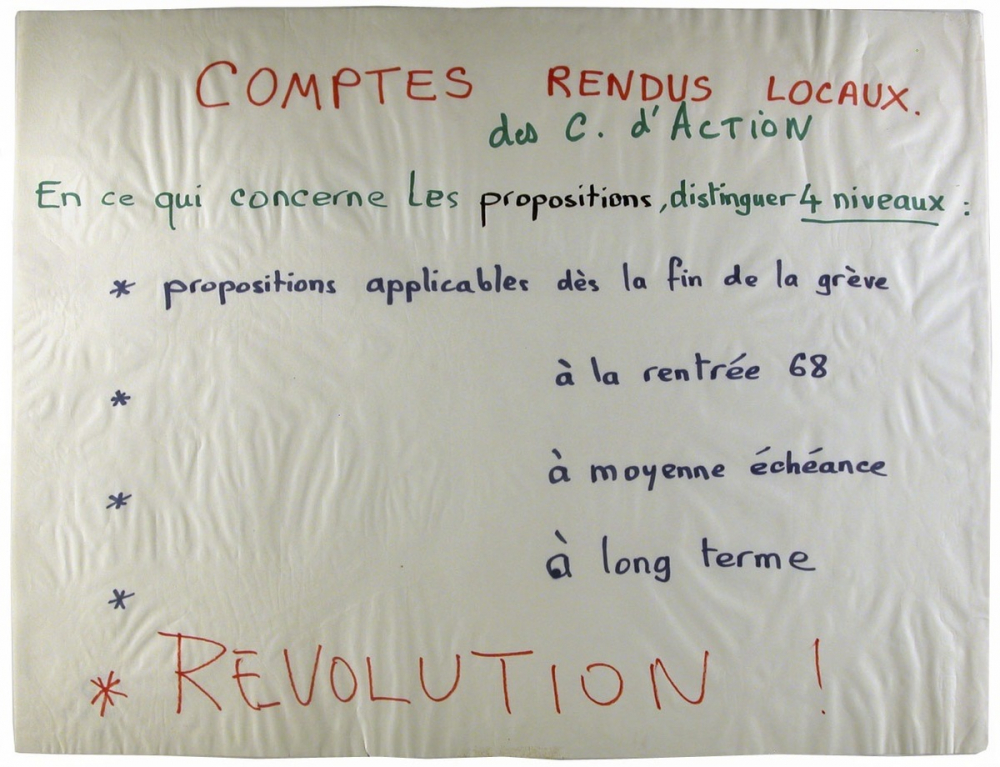 COMPTES RENDUS LOCAUX.
des C. d'ACTION
En ce qui concerne les propositions, distinguer 4 niveaux :
* propositions applicables dès la fin de la grève
* à la rentrée 68
* à moyenne échéance
* à long terme
* REVOLUTION !